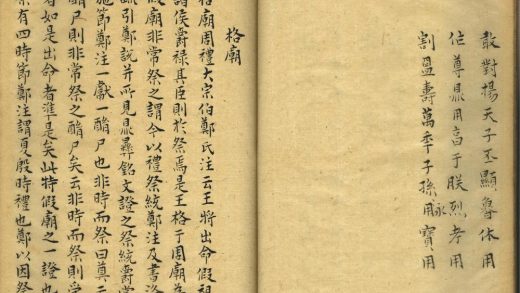 敢對揚天子丕顯魯休用
作尊鼎用亯于朕烈考用
割壽萬秊子孫永用寶用
格廟
格廟周禮大宗伯鄭氏注云王將出命假祖
諸侯爵祿其臣則於祭焉是王格于周廟為
假廟非常祭之謂今以禮祭統鄭注及書洛
疏引鄭說并所見鼎彝銘文證之祭統爵賞
施節鄭注一獻一酳尸也非時而祭曰奠
酳尸則非常祭之酳尸矣云非時而祭則受
者如是出命者準是矣此特假廟之一證也
祭有四時節鄭注謂夏殷時禮也鄭以因祭